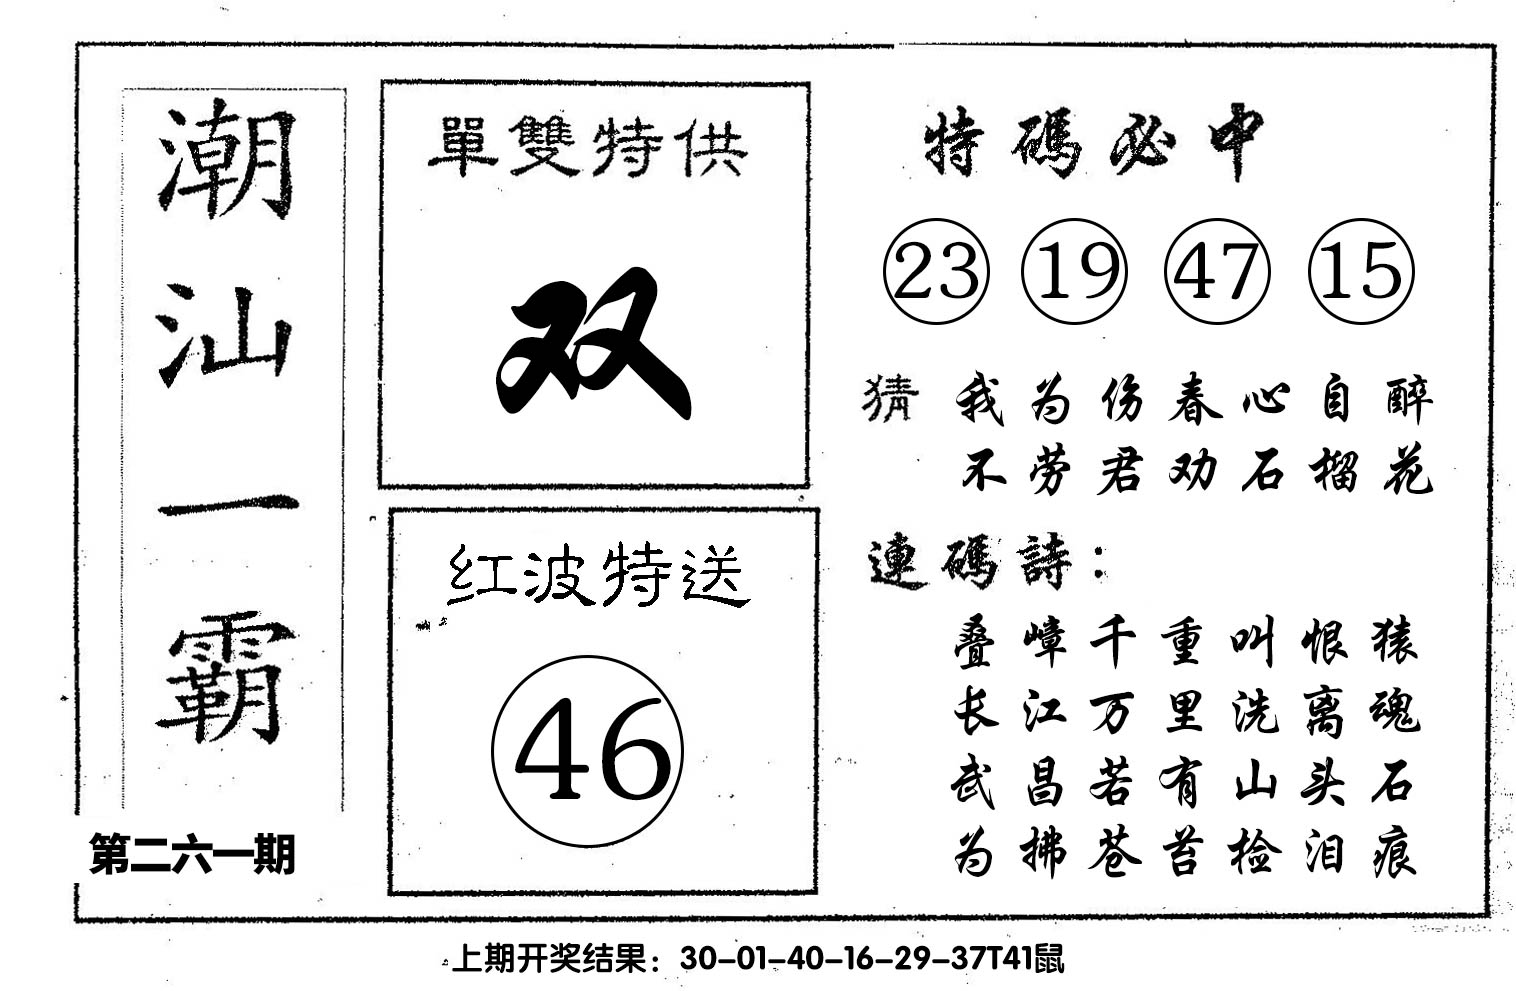 潮汕一霸
第二六一期
單雙特供
双
红波特送
46
特碼必中
23 19 47 15
猜 我为伤春心自醉
不劳君劝石榴花
連碼詩：
叠嶂千重叫恨猿
长江万里洗离魂
武昌若有山头石
为拂苍苔捡泪痕
上期开奖结果：30-01-40-16-29-37T41鼠